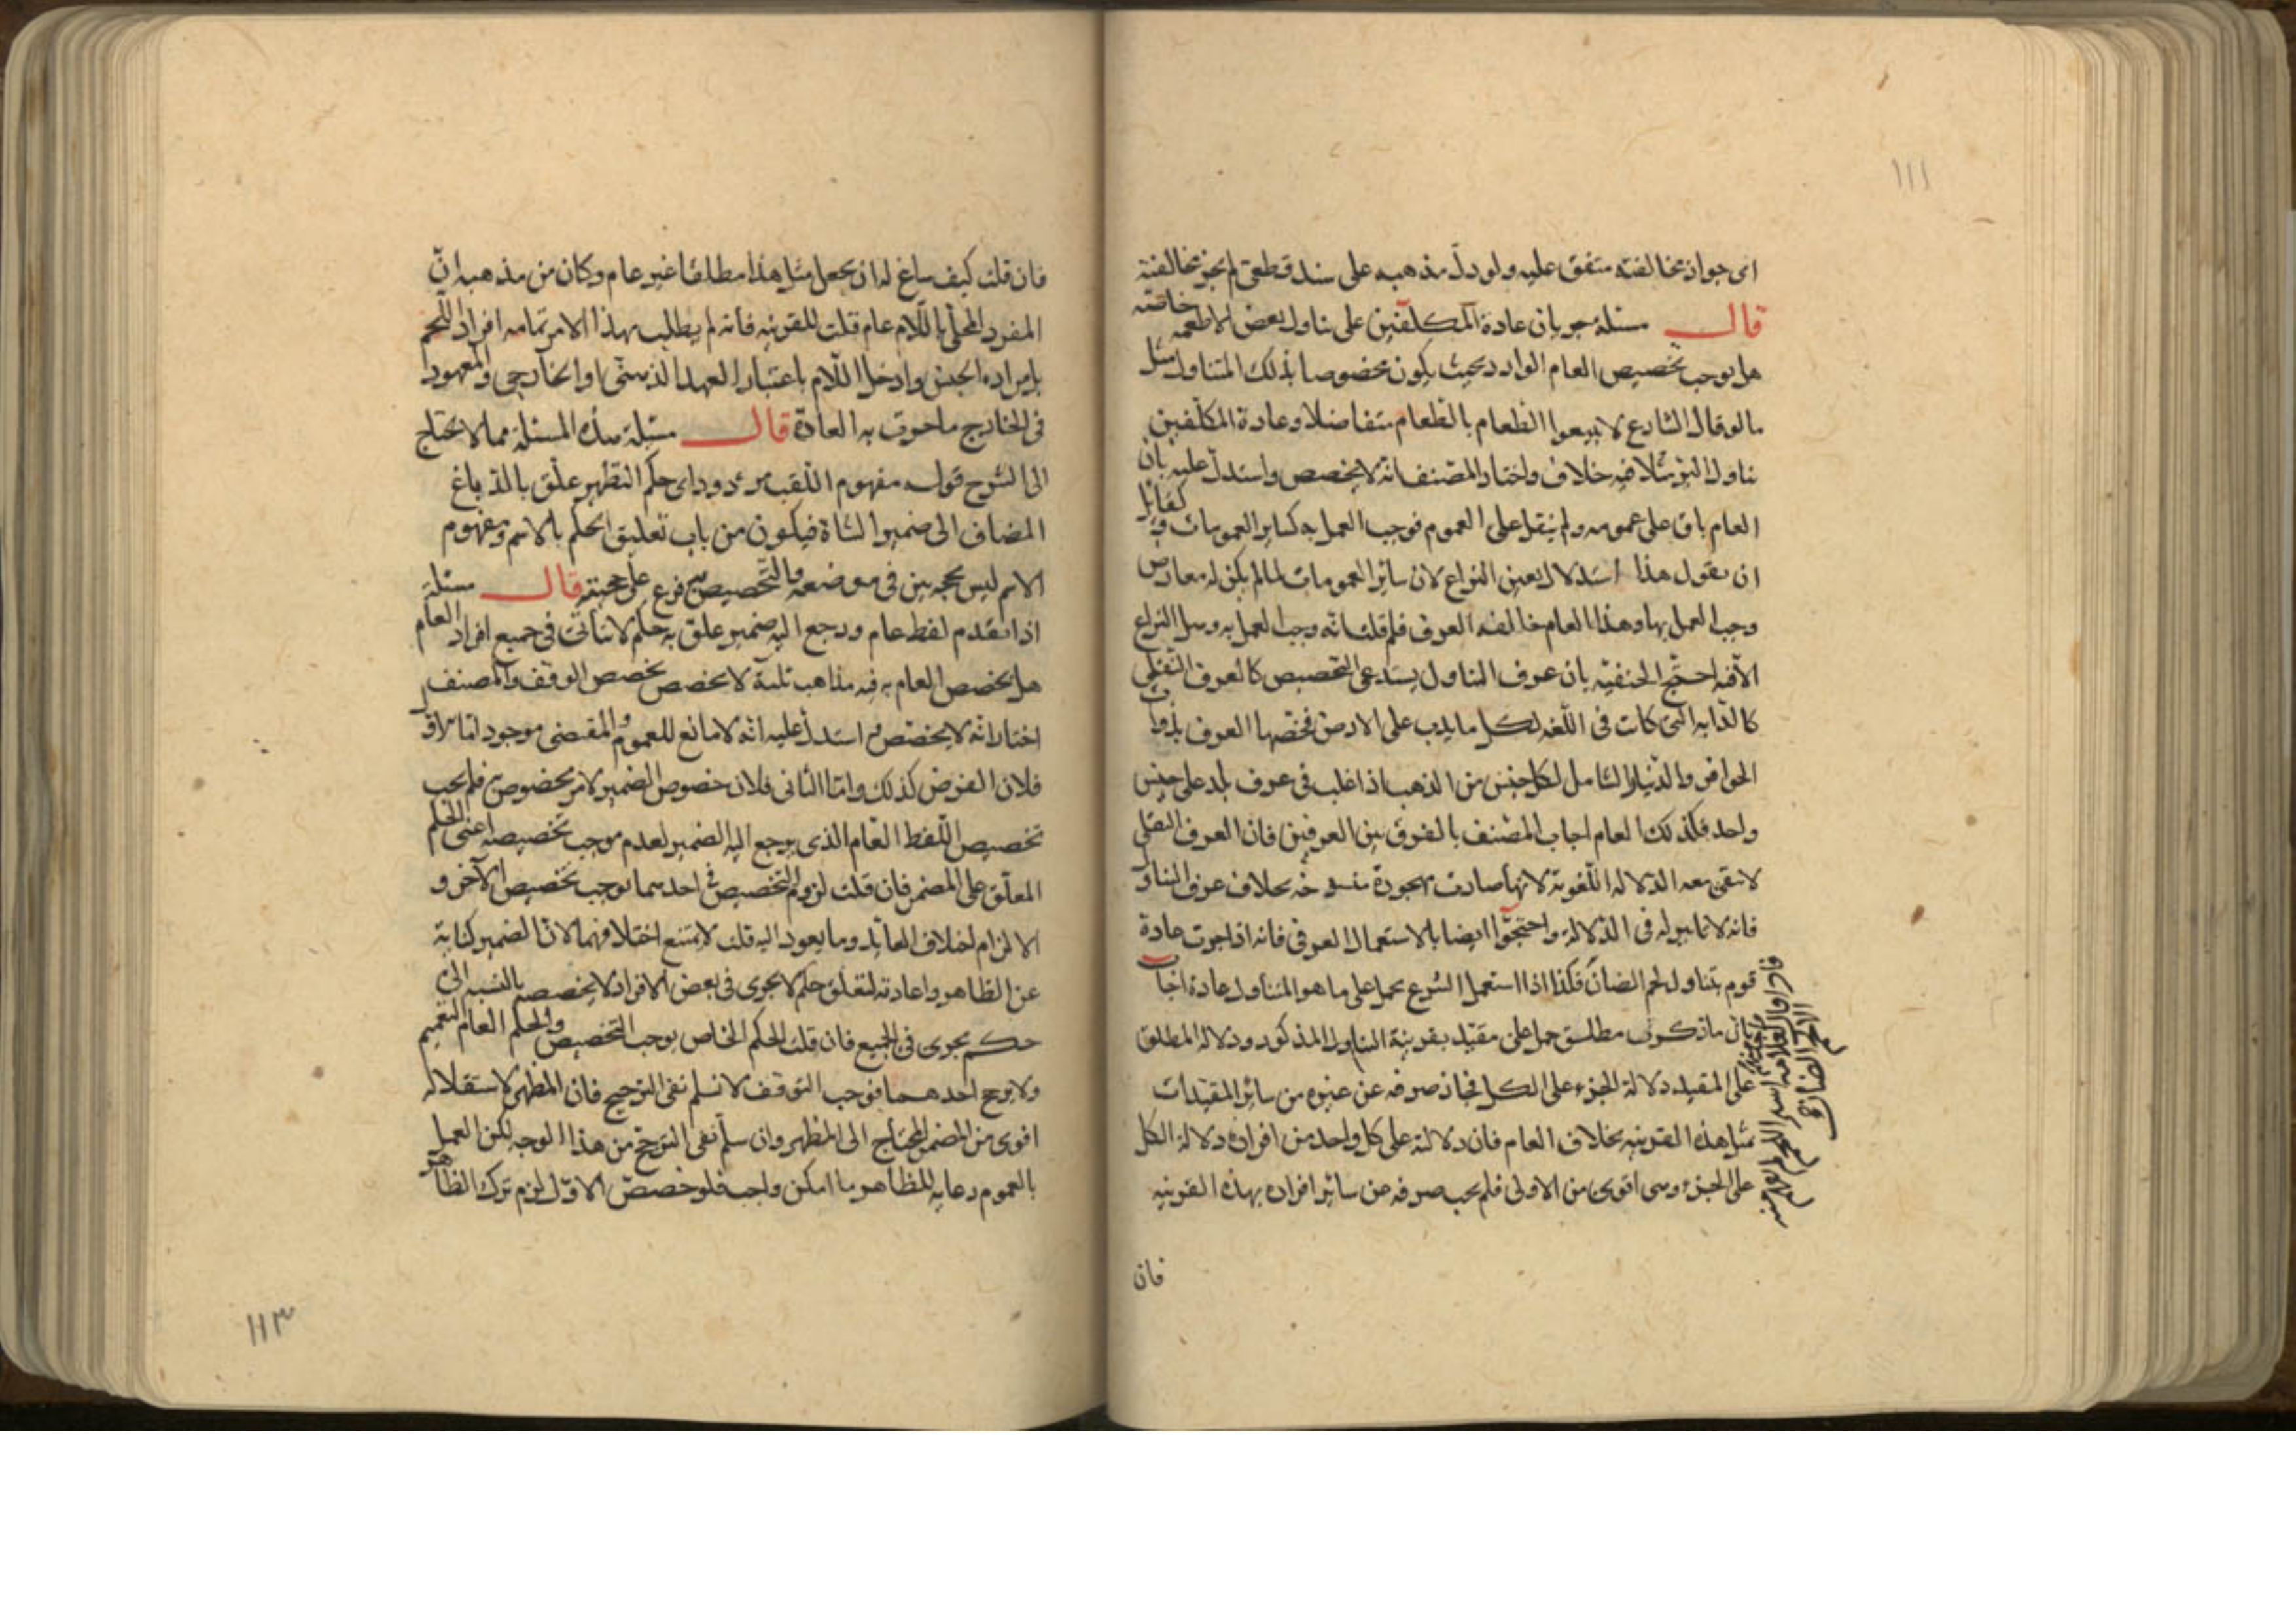 ١١١
اى جواز مخالفته متفق عليه ولو دل مذهبه على سند قطعى لم يجز مخالفته
قال مسئلة جريان عادة المكلفين على تناول بعض الاطعمه خاصته
هل يوجب تخصيص العام الوارد بحيث يكون مخصوصا بذلك المتناول مثل
ما لو قال الشارع لا تبيعوا الطعام بالطعام متفاضلا وعادة المكلفين
تناول البر مثلا فيه خلاف واختار المصنف انه لا يخصص واستدل عليه بان
العام باق على عمومه ولم ينقل على العموم فوجب العمل به كساير العمومات ولقايل
ان يقول هذا استدلال بعين النزاع لان سائر العمومات لما لم يكن له معارض
وجب العمل بها وهذا العام خالفه العرف فلم قلت انه وجب العمل به وهل النزاع
الا فيه احتج الحنفيه بان عرف التناول يستدعى التخصيص كالعرف النقلى
كالدابه التى كانت فى اللغه لكل ما يدب على الارض فخصها العرف بذوات
الحوافر والدينار الشامل لكل جنس من الذهب اذا غلب فى عرف بلد على جنس
واحد فكذلك العام اجاب المصنف بالفرق بين العرفين فان العرف النقلى
لا تبقى معه الدلاله اللغويه لانها صارت مهجورة بخلاف عرف التناول
فانه لا تاثير له فى الدلالة واحتجوا ايضا بالاستعمال العرفى فانه اذا جرت عادة
قوم بتناول لحم الضان فكذا اذا استعمل الشرع يحمل على ما هو المتناول عادة اجاب
بان ما ذكرتم مطلق حمل على مقيد بقرينة التناول المذكور ودلالة المطلق
على المقيد دلالة الجزء على الكل فجاز صرفه عن غيره من سائر المقيدات
بمثل هذه القرينه بخلاف العام فان دلالته على كل واحد من افراده دلالة الكل
على الجزء وهى اقوى من الاولى فلم يجب صرفه عن سائر افراده بهذه القرينه
فان
فان قلت كيف ساغ له ان يجعل مثل هذا مطلقا غير عام وكان من مذهبه ان
المفرد المحلى باللام عام قلت للقرينه فانه لم يطلب بهذا الامر تمامه افراد اللحم
بايراده الجنس وادخل اللام باعتبار العهد الذهنى او الخارجى والمعهود
فى الخارج ما جرت به العادة قال مسئلة هذه المسئلة مما لا يحتاج
الى الشرح قوله مفهوم اللقب مردود اى حكم التطهير علق بالدباغ
المضاف الى ضمير الشاة فيكون من باب تعليق الحكم بالاسم ومفهوم
الاسم ليس بحجه بين فى موضعه والتخصيص به فرع على حجيته قال مسئلة
اذا تقدم لفظ عام ورجع اليه ضمير علق به حكم لا يتاتى فى جميع افراد العام
هل يخصص العام به فيه مذاهب ثلثة لا يخصص يخصص الوقف والمصنف
اختار انه لا يخصص واستدل عليه انه لا مانع للعموم والمقتضى موجود اما الاول
فلان الفرض كذلك واما الثانى فلان خصوص الضمير لامر مخصوص به فلم يجب
تخصيص اللفظ العام الذى يرجع اليه الضمير لعدم موجب تخصيصه اعنى الحكم
المعلق على المضمر فان قلت لزوم التخصيص فى احدهما يوجب تخصيص الآخر و
الا لزم اختلاف العائد وما يعود اليه قلت لا يمتنع اختلافهما لان الضمير كناية
عن الظاهر واعادته لتعلق حكم لا يجرى فى بعض الافراد لا يخصصه بالنسبه الى
حكم يجرى فى الجميع فان قلت الحكم الخاص يوجب التخصيص والحكم العام التعميم
ولا يرجح احدهما فوجب التوقف لا نسلم نفى الترجيح فان المظهر لاستقلاله
اقوى من المضمر المحتاج الى المظهر وان سلم نفى الترجيح من هذا الوجه لكن العمل
بالعموم رعاية للظاهر ما امكن واجب فلو خصص الاول لزم ترك الظاهر
١١٣